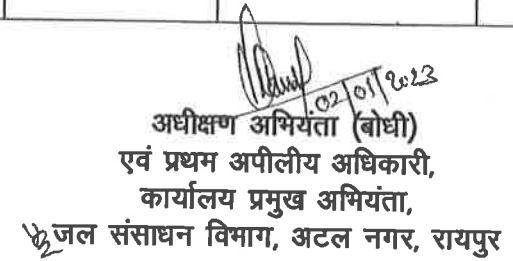 02/01/2023
अधीक्षण अभियंता (बोधी)
एवं प्रथम अपीलीय अधिकारी,
कार्यालय प्रमुख अभियंता,
जल संसाधन विभाग, अटल नगर, रायपुर